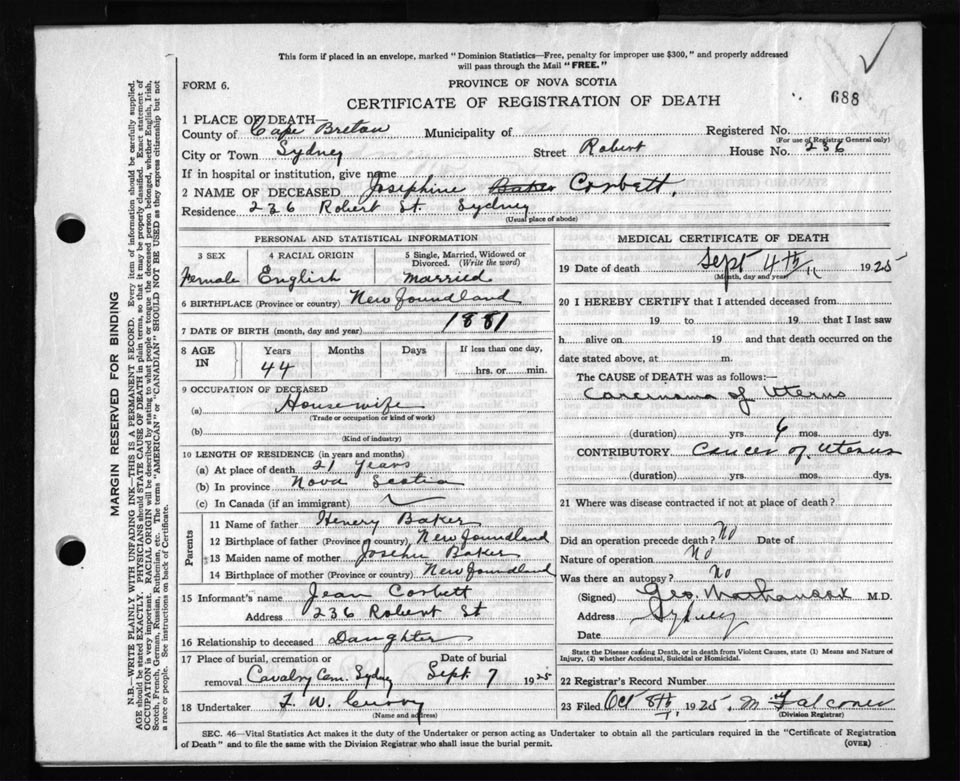 This form if placed in an envelope, marked "Dominion Statistics—Free, penalty for improper use $300," and properly addressed
will pass through the Mail "FREE."
FORM 6.
PROVINCE OF NOVA SCOTIA
CERTIFICATE OF REGISTRATION OF DEATH
688
1 PLACE OF DEATH—
County of Cape Breton Municipality of Registered No.
(For use of Registrar General only)
City or Town Sydney Street Robert House No. 236
If in hospital or institution, give name
2 NAME OF DECEASED Josephine Baker Corbett,
Residence 236 Robert St. Sydney
(Usual place of abode)
PERSONAL AND STATISTICAL INFORMATION
3 SEX 4 RACIAL ORIGIN 5 Single, Married, Widowed or Divorced. (Write the word)
Female English Married
6 BIRTHPLACE (Province or country) Newfoundland
7 DATE OF BIRTH (month, day and year) 1881
8 AGE IN Years Months Days If less than one day,
44 hrs. or min.
9 OCCUPATION OF DECEASED
(a) Housewife
(Trade or occupation or kind of work)
(b)
(Kind of industry)
10 LENGTH OF RESIDENCE (in years and months)
(a) At place of death 21 years
(b) In province Nova Scotia
(c) In Canada (if an immigrant)
Parents
11 Name of father Henery Baker
12 Birthplace of father (Province or country) Newfoundland
13 Maiden name of mother Baker
14 Birthplace of mother (Province or country) Newfoundland
15 Informant's name Jean Corbett
Address 236 Robert St
16 Relationship to deceased Daughter
17 Place of burial, cremation or removal Cavalry Cem. Sydney Date of burial Sept. 7 1925
18 Undertaker F. W. Curry
(Name and address)
MEDICAL CERTIFICATE OF DEATH
19 Date of death Sept 4th 1925
(Month, day and year)
20 I HEREBY CERTIFY that I attended deceased from
19 to 19 that I last saw
h alive on 19 and that death occurred on the
date stated above, at m.
The CAUSE of DEATH was as follows:—
Carcinoma of Uterus
(duration) yrs. 6 mos. dys.
CONTRIBUTORY Cancer of Uterus
(duration) yrs. mos. dys.
21 Where was disease contracted if not at place of death?
Did an operation precede death? No Date of
Nature of operation No
Was there an autopsy? No
(Signed) Geo. M.D.
Address Sydney
Date
State the Disease causing Death, or in death from Violent Causes, state (1) Means and Nature of
Injury, (2) whether Accidental, Suicidal or Homicidal.
22 Registrar's Record Number
23 Filed Oct 8th 1925. M Falconer
(Division Registrar)
SEC. 46—Vital Statistics Act makes it the duty of the Undertaker or person acting as Undertaker to obtain all the particulars required in the "Certificate of Registration
of Death" and to file the same with the Division Registrar who shall issue the burial permit.
(OVER)
MARGIN RESERVED FOR BINDING
N.B.—WRITE PLAINLY WITH UNFADING INK—THIS IS A PERMANENT RECORD. Every item of information should be carefully supplied.
AGE should be stated EXACTLY. PHYSICIANS should STATE CAUSE OF DEATH in plain terms, so that it may be properly classified. Exact statement of
OCCUPATION is very important. RACIAL ORIGIN will be described by stating to what people or tongue the deceased person belonged, whether English, Irish,
Scotch, French, German, Russian, Ruthenian, etc. The terms "AMERICAN" or "CANADIAN" SHOULD NOT BE USED as they express citizenship but not
a race or people. See instructions on back of Certificate.